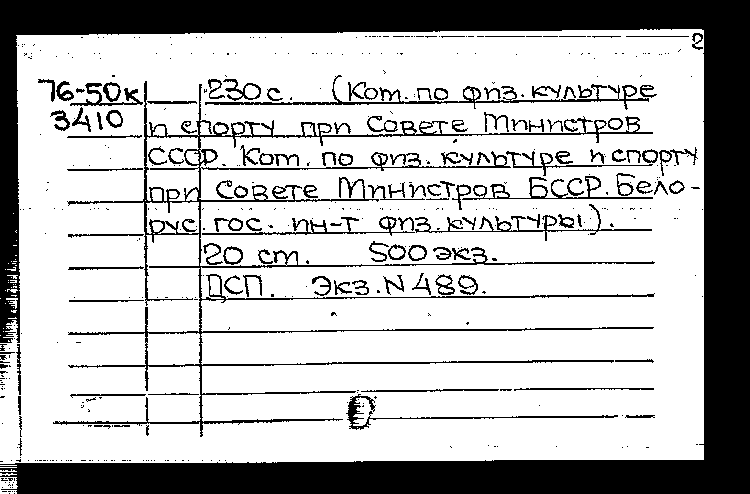 2
76-50к 230 с. (Ком. по физ. культуре
3410 и спорту при Совете Министров
СССР. Ком. по физ. культуре и спорту
при Совете Министров БССР. Бело-
рус. гос. ин-т физ. культуры).
20 см. 500 экз.
ДСП. Экз. N 489.